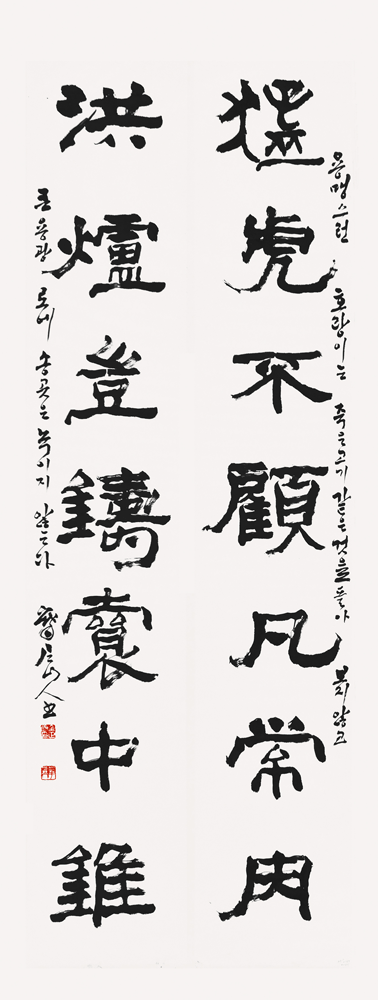 용맹스런 호랑이는 죽은 고기 같은 것을 돌아 보지 않고
猛虎不顧凡常肉
洪爐豈鑄囊中錐
큰 용광로에 송곳은 녹이지 않는다
山人